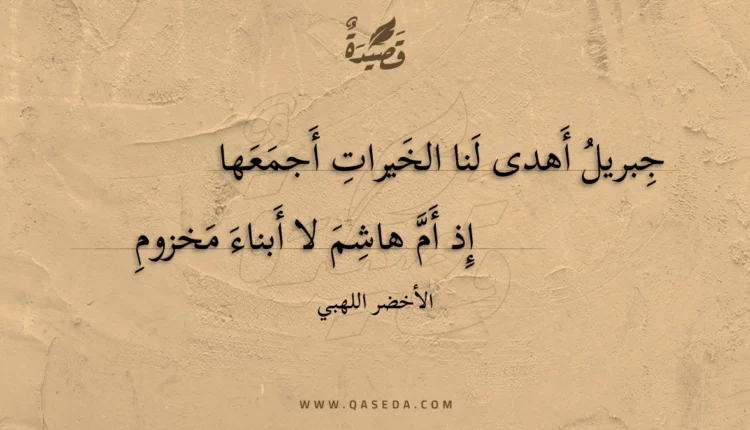 قَصِيدَةٌ
جِبريلُ أَهدى لَنا الخَيراتِ أَجمَعَها
إِذ أَمَّ هاشِمَ لا أَبناءَ مَخزومِ
الأخضر اللهبي
WWW.QASEDA.COM